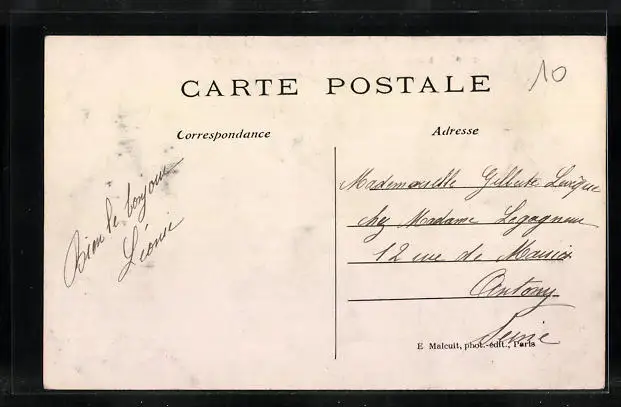 CARTE POSTALE
10
Correspondance
Adresse
Bien le bonjour
Léonie
Mademoiselle Gilberte Levêque
chez Madame Legagneux
12 rue de
Antony
Seine
E Malcuit, phot.-édit., Paris